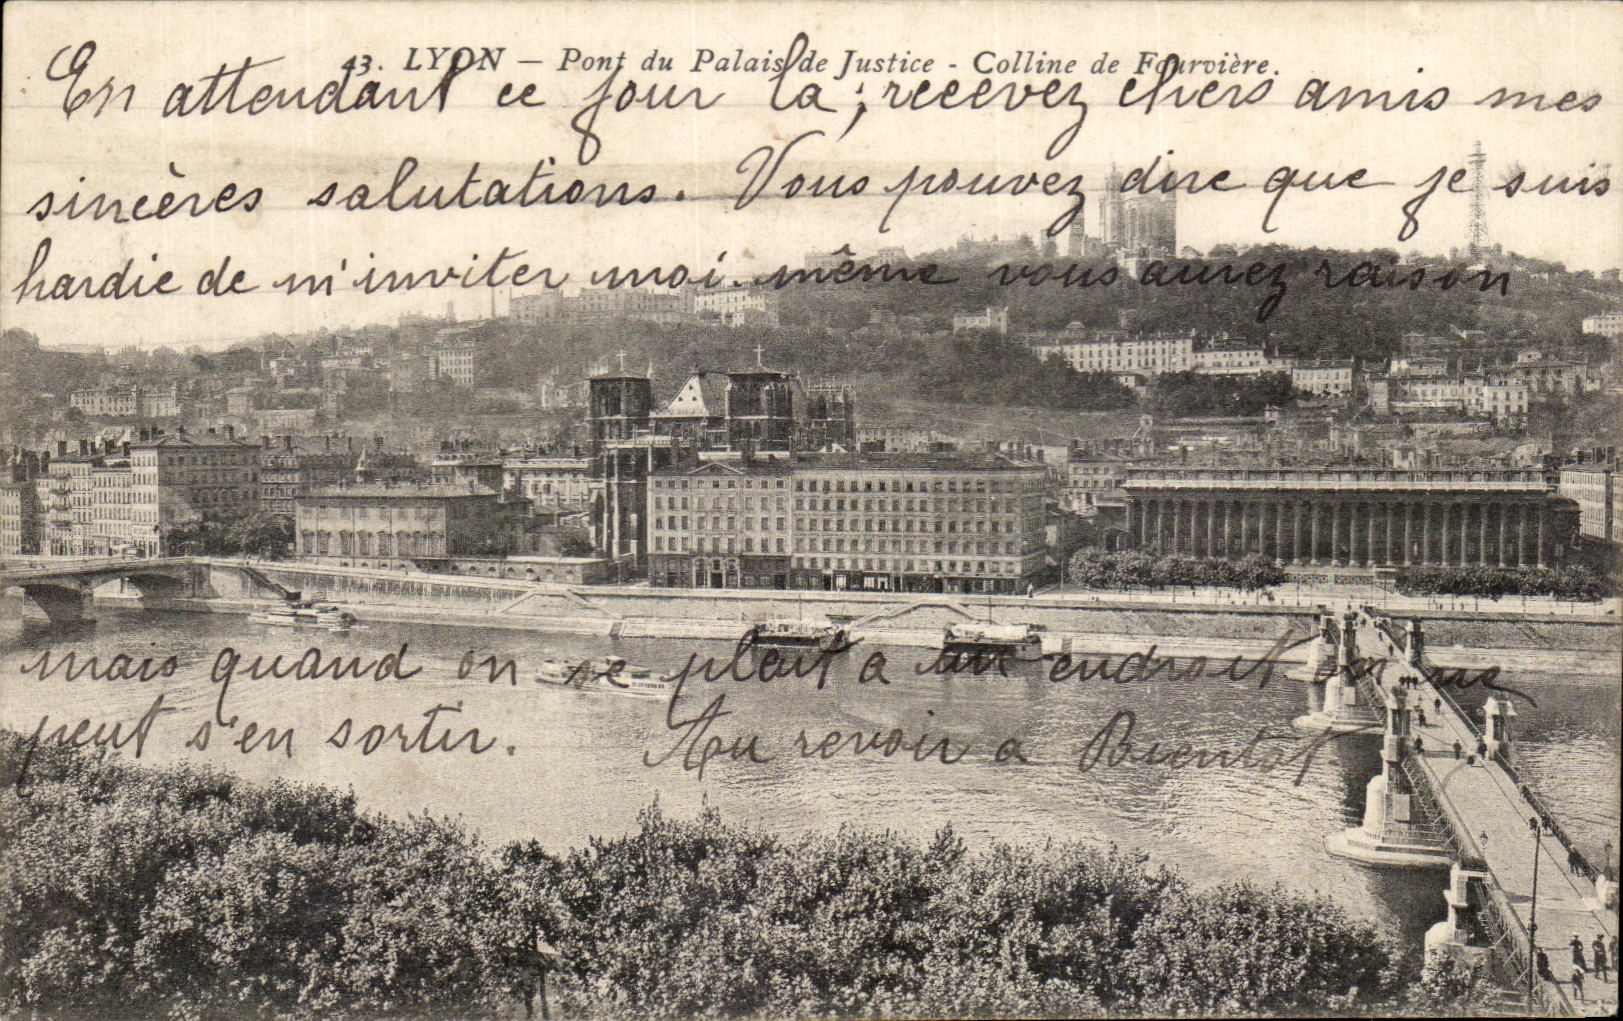 43. LYON — Pont du Palais de Justice - Colline de Fourvière.
En attendant ce jour la ; recevez chers amis mes
sincères salutations. Vous pouvez dire que je suis
hardie de m'inviter moi-même vous aurez raison
mais quand on se plait a un endroit on ne
peut s'en sortir. Au revoir a Bientot